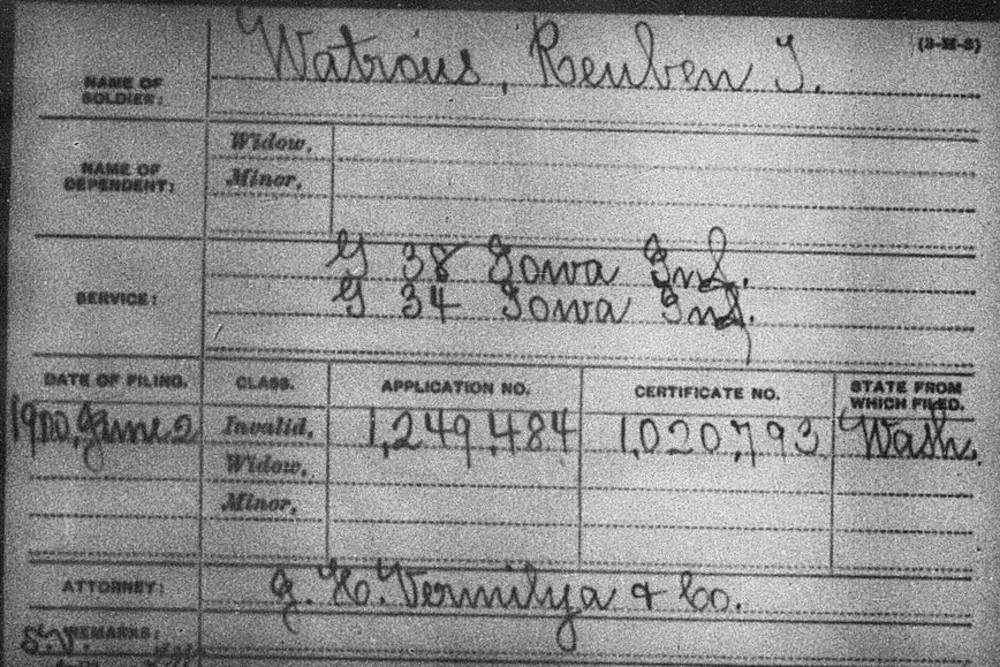 (3-M-3)
NAME OF SOLDIER: Watrous, Reuben J.
NAME OF DEPENDENT:
Widow,
Minor,
SERVICE:
G 38 Iowa Inf.
G 34 Iowa Inf.
DATE OF FILING. CLASS. APPLICATION NO. CERTIFICATE NO. STATE FROM WHICH FILED.
1900, June 2 Invalid, 1,249,484 1,020,793 Wash.
Widow,
Minor,
ATTORNEY: G. H. Vermilya & Co.
REMARKS: